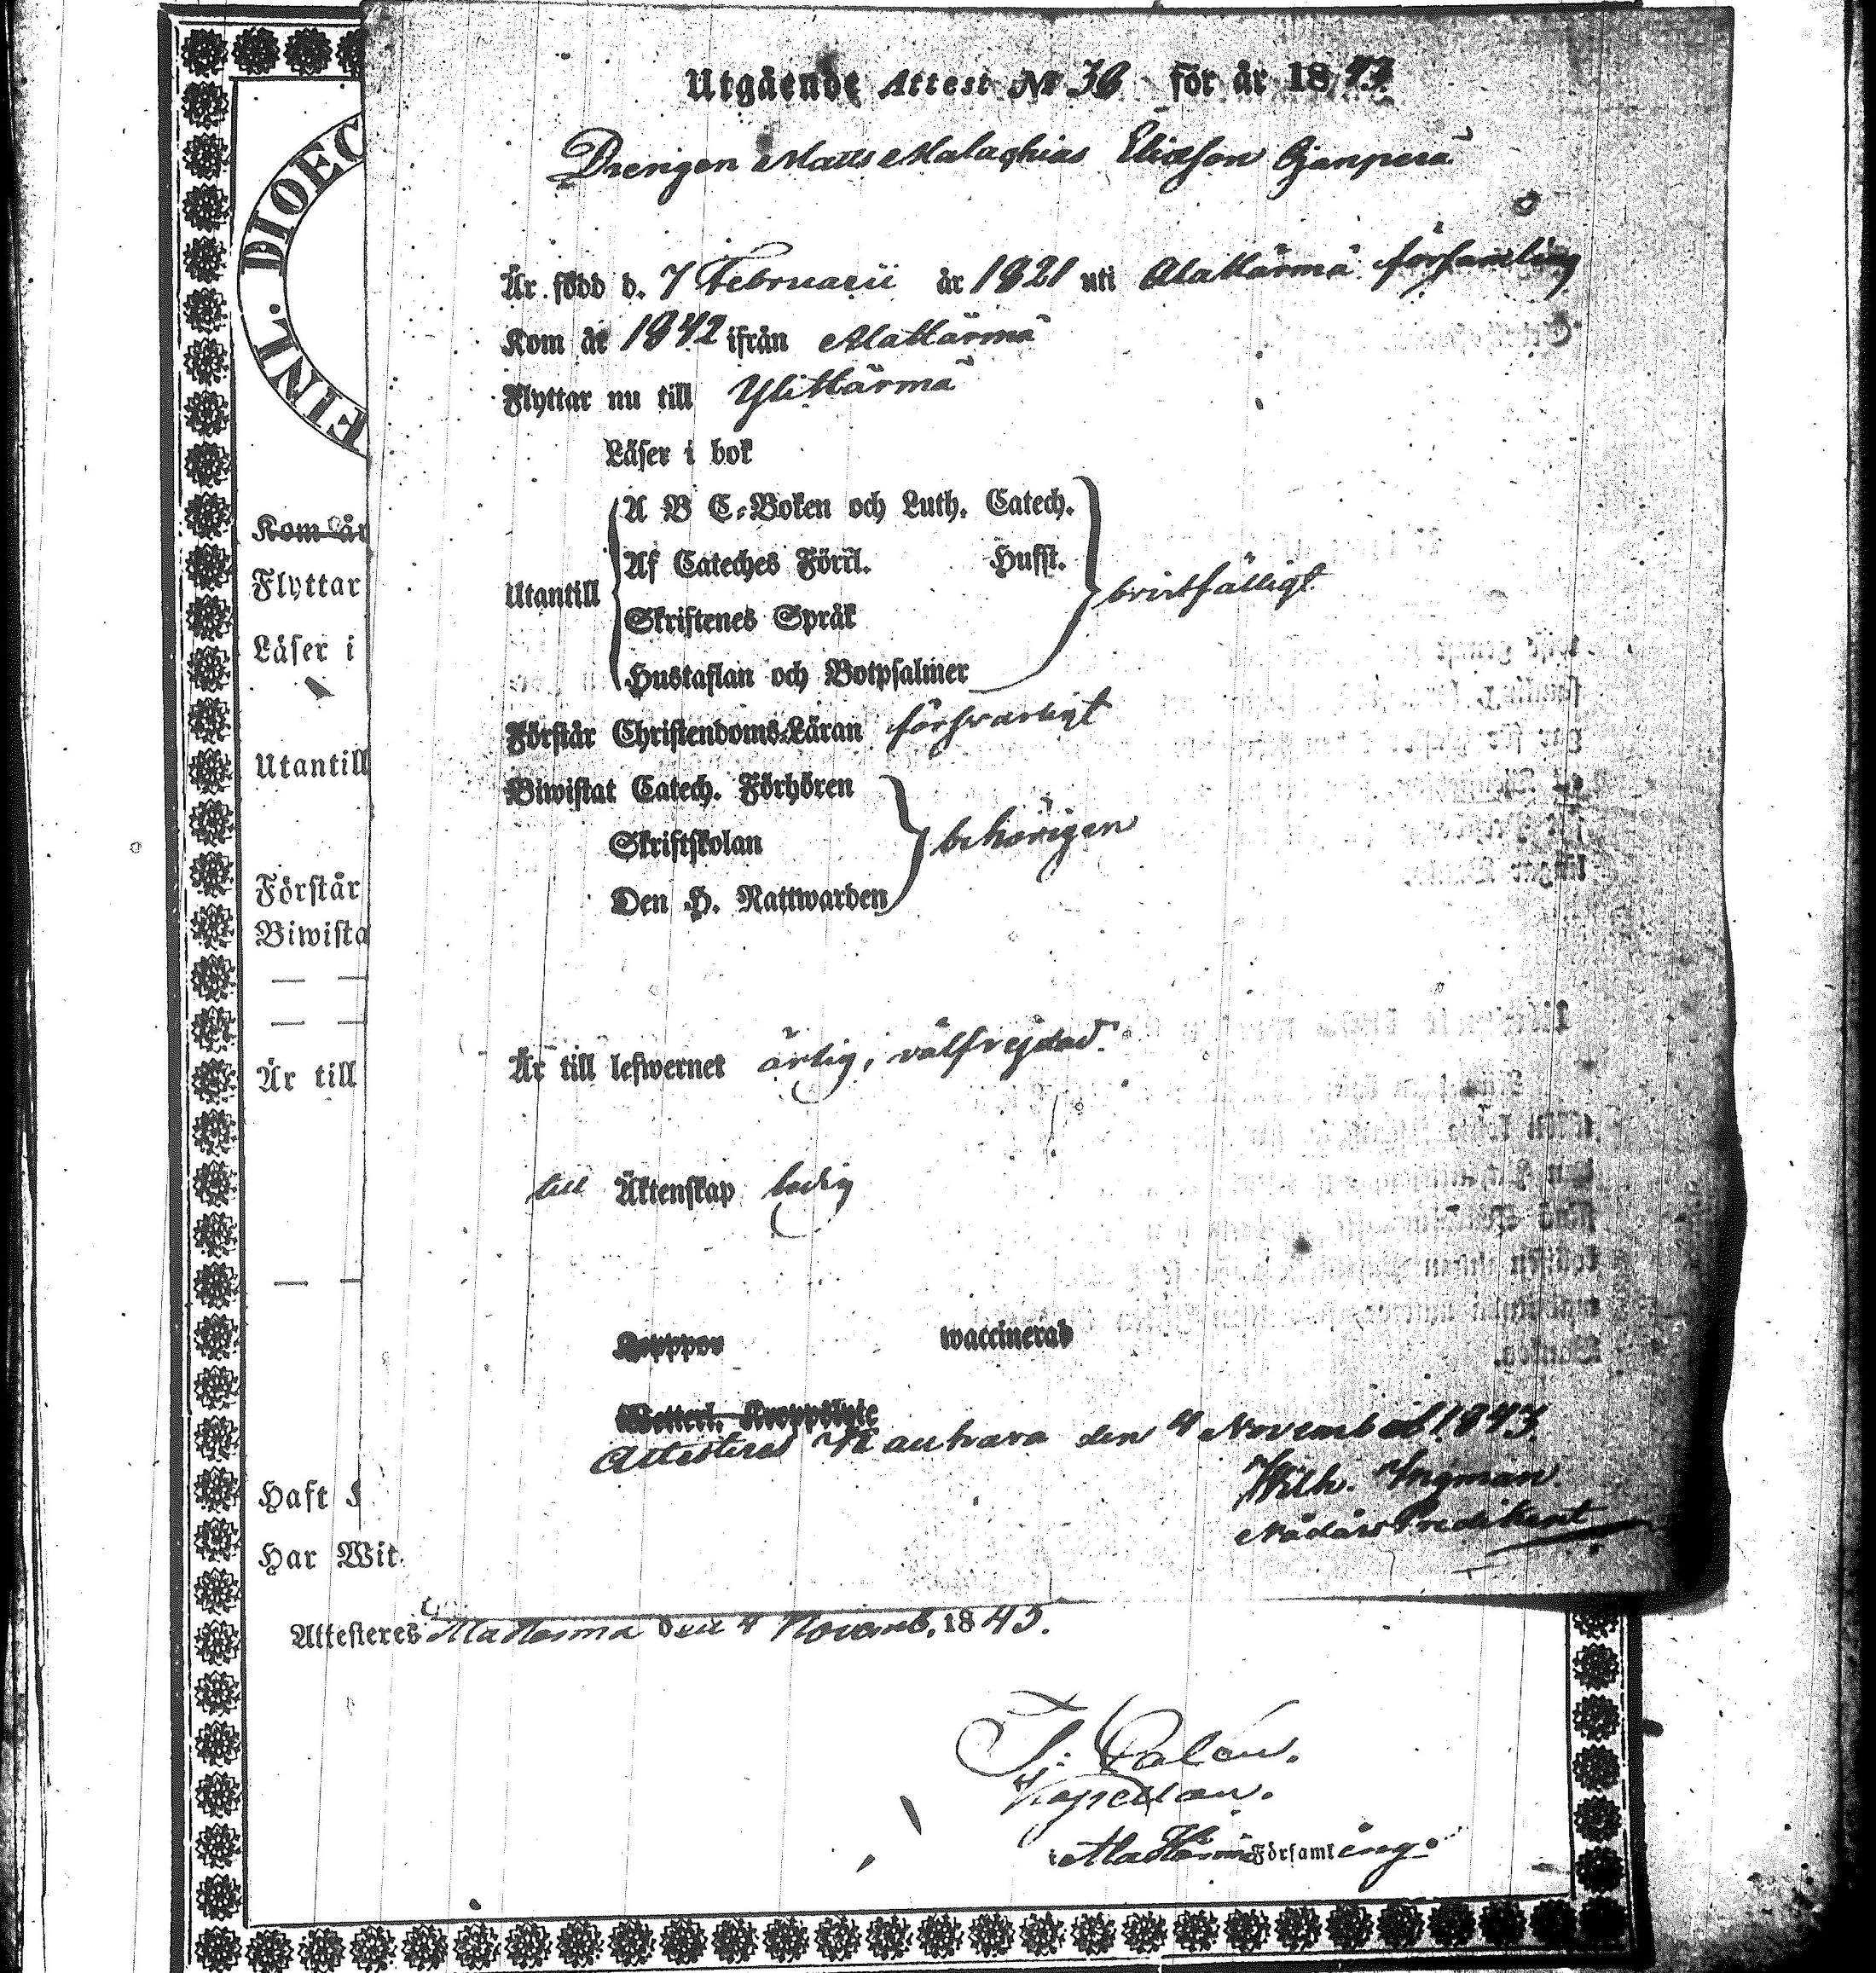 FINL. DIOEC
Utgående Attest № 36 för år 1843
Drengen Matts Malachias Eliæson
Är född d. 7 Februarii år 1821 uti Alahärmä församling
Kom år 1842 ifrån Alahärmä
Flyttar nu till Ylihärmä
Läser i bok
Utantill
A B C-Boken och Luth. Catech.
Af Cateches Förkl. Hufst.
Skriftenes Språk
Hustaflan och Botpsalmer
bristfälligt
Förstår Christendoms-Läran försvarligt
Biwistat Catech. Förhören
Skriftskolan
Den H. Nattwarden
behörigen
Är till lefwernet ärlig, välfrejdad.
till Äktenskap ledig
Koppor waccinerad
Wetterl. Kroppslyte
Attesteras Kauhava den 4 November 1843.
Wilh. Ingman
Nådårs Predikant
Kom år
Flyttar
Läser i
Utantill
Förstår
Biwista
Är till
Haft
Har Wit
Attesteres Alahärmä den 4 Novemb. 1843.
Kapellan.
i Alahärmä Församling.